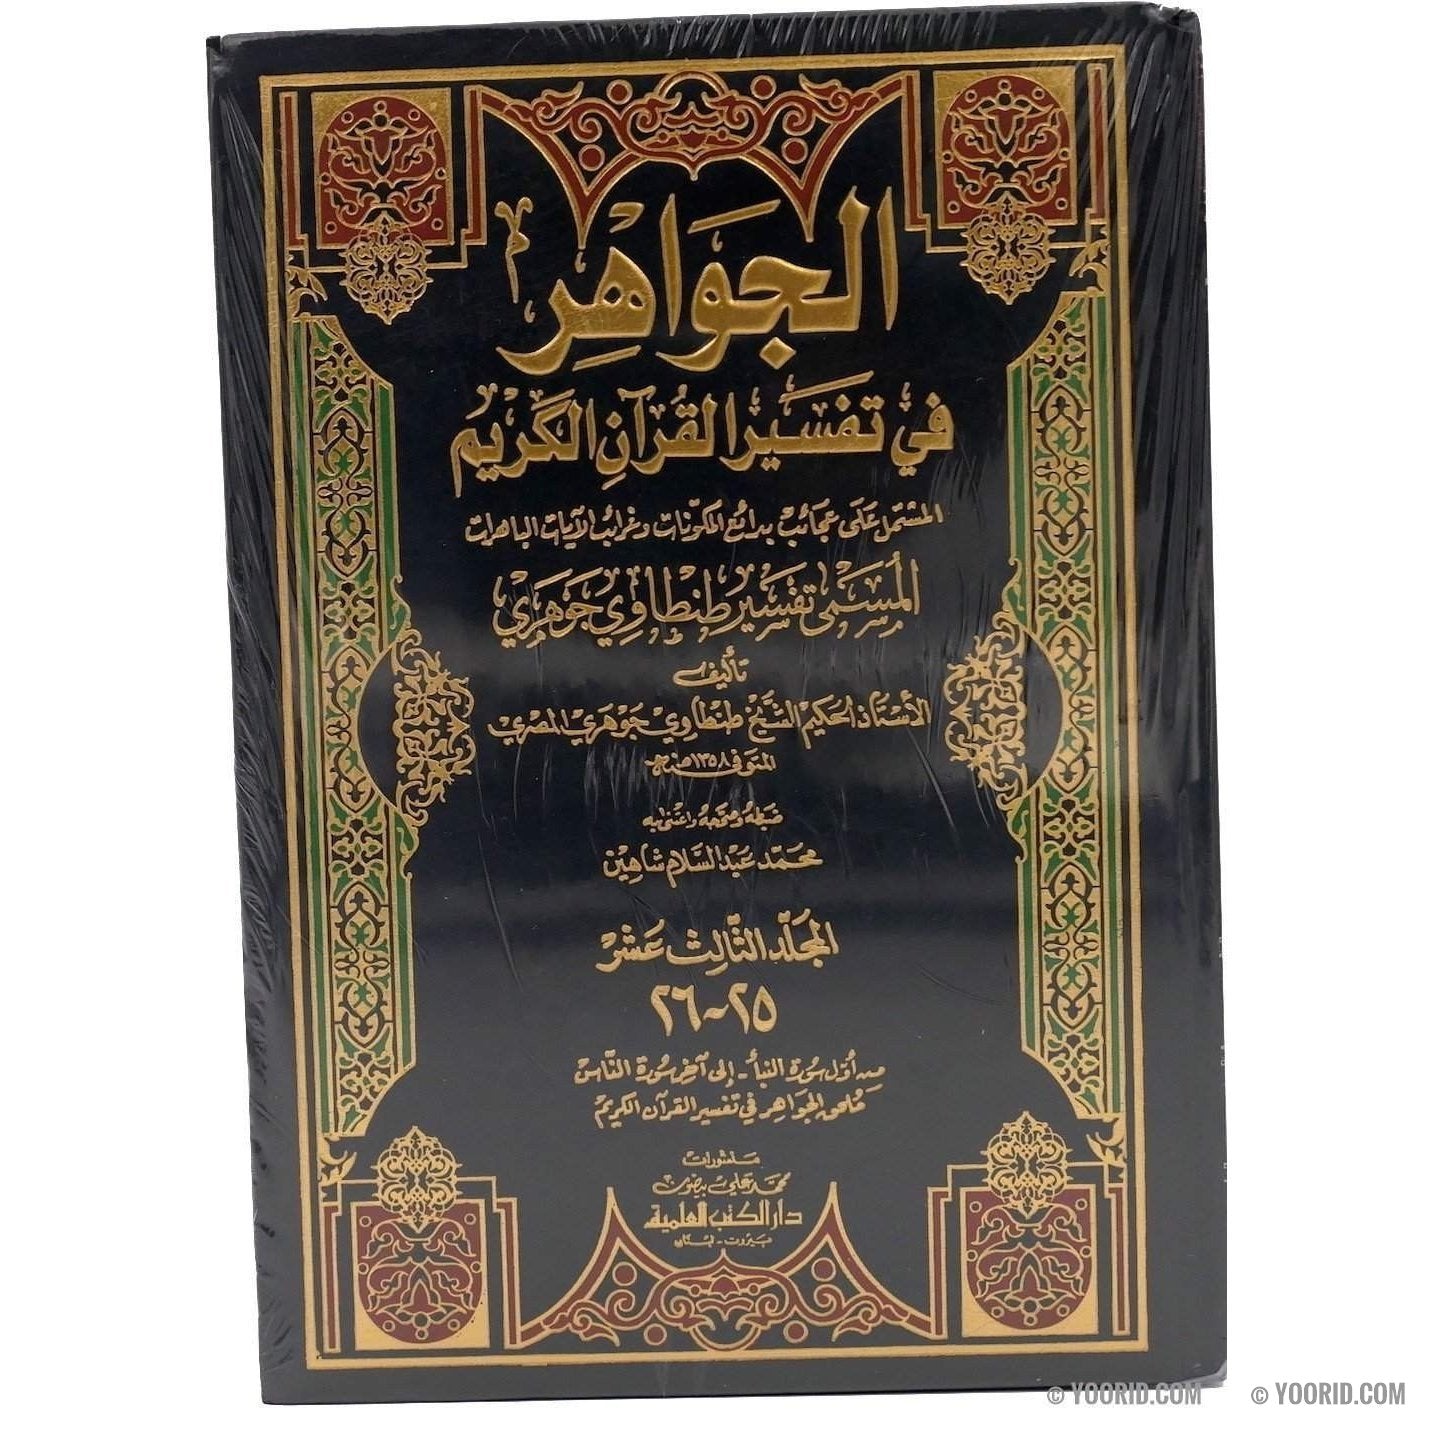 الجَوَاهِر
في تَفسَيرِ القُرآنِ الكَريم
المشتمل عَلى عَجَائب بدائع المكوّنات وغرائب الآيات الباهرات
المُسَمّى تفسَير طنطاوي جَوهَري
تأليف
الأستاذ الحكيم الشيخ طنطاوي جَوهَري المصري
المتوفى ١٣٥٨ هـ
ضبطه وصححه واعتنى به
محمّد عَبْد السَّلام شاهِين
المجلّد الثّالِث عَشَر
٢٥ - ٢٦
من أوّل سُورة النبأ - إلى آخر سُورة النّاس
مُلحق الجواهر في تفسير القرآن الكريم
منشورات
محمد علي بيضون
دار الكتب العلمية
بيروت - لبنان
© YOORID.COM © YOORID.COM